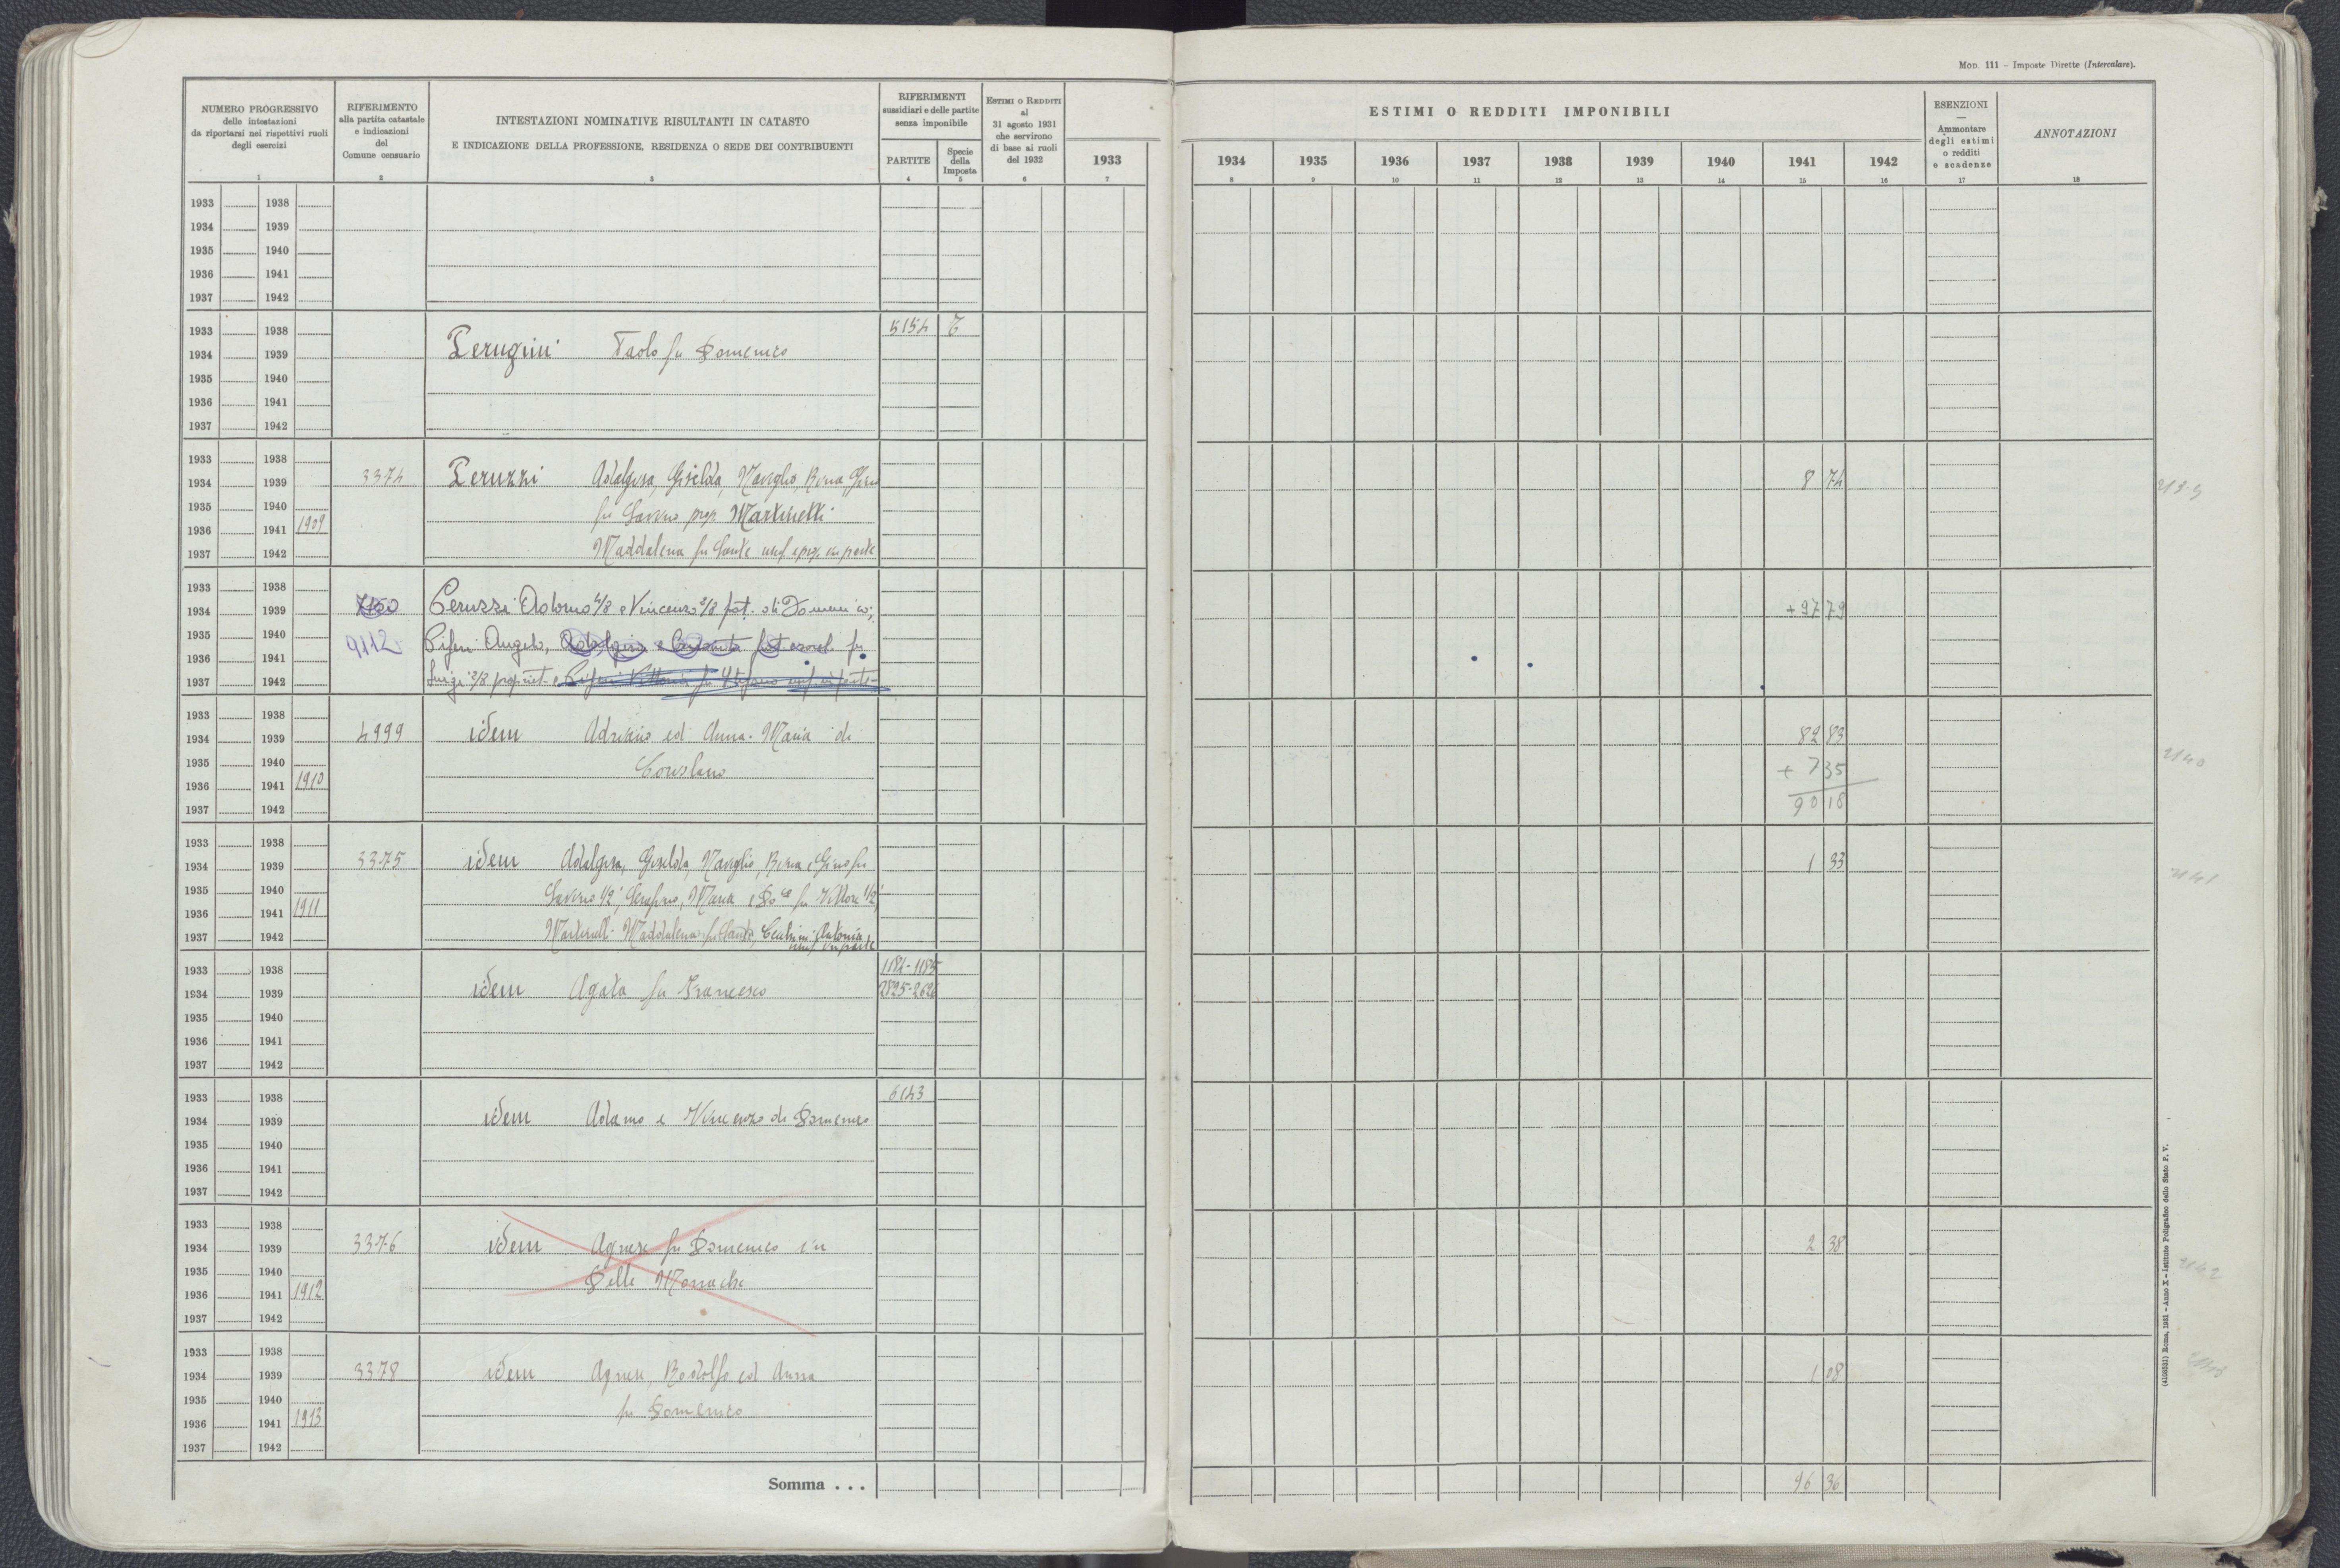 Mod. 111 - Imposte Dirette (Intercalare).
NUMERO PROGRESSIVO
delle intestazioni
da riportarsi nei rispettivi ruoli
degli esercizi
1
RIFERIMENTO
alla partita catastale
e indicazioni
del
Comune censuario
2
INTESTAZIONI NOMINATIVE RISULTANTI IN CATASTO
E INDICAZIONE DELLA PROFESSIONE, RESIDENZA O SEDE DEI CONTRIBUENTI
3
RIFERIMENTI
sussidiari e delle partite
senza imponibile
PARTITE
4
Specie
della
Imposta
5
ESTIMI O REDDITI
al
31 agosto 1931
che servirono
di base ai ruoli
del 1932
6
ESTIMI O REDDITI IMPONIBILI
1933 1934 1935 1936 1937 1938 1939 1940 1941 1942
7 8 9 10 11 12 13 14 15 16
ESENZIONI
—
Ammontare
degli estimi
o redditi
e scadenze
17
ANNOTAZIONI
18
1933 1938
1934 1939
1935 1940
1936 1941
1937 1942
1933 1938 5154 T
1934 1939 Perugini Paolo fu Domenico
1935 1940
1936 1941
1937 1942
1933 1938
1934 1939 3374 Peruzzi Adalgisa, Giselda, Naviglio, Rina, Gino 8 74 2139
1935 1940 fu Saverio prop. Martinelli
1936 1941 1909
1937 1942 Maddalena fu Sante usuf. e prop. in parte
1933 1938
1934 1939 7150 Peruzzi Adamo 4/8 e Vincenzo 2/8 fat. di Domenico; + 97 79
1935 1940 9112 Piferi Angelo, fu
1936 1941
1937 1942 Luigi 2/8 propriet. e
1933 1938
1934 1939 4999 idem Adriano ed Anna-Maria di 82 83
1935 1940 Coriolano + 7 35 2140
1936 1941 1910 90 18
1937 1942
1933 1938
1934 1939 3375 idem Adalgisa, Giselda, Naviglio, Rina e Gino fu 1 33 2141
1935 1940 Saverio 1/2; Serafino, Maria e Do.ca fu Vittore 1/2;
1936 1941 1911
1937 1942 Martinelli Maddalena fu Sante, Antonia
usuf. in parte
1933 1938 1184-1185
1934 1939 idem Agata fu Francesco 2825-2626
1935 1940
1936 1941
1937 1942
1933 1938 6143
1934 1939 idem Adamo e Vincenzo di Domenico
1935 1940
1936 1941
1937 1942
1933 1938
1934 1939 3376 idem Agnese fu Domenico in 2 38
1935 1940 Delle Monache 2142
1936 1941 1912
1937 1942
1933 1938
1934 1939 3378 idem Agnese, Rodolfo ed Anna 1 08 2143
1935 1940 fu Domenico
1936 1941 1913
1937 1942
Somma . . . 96 36
(4100531) Roma, 1931 - Anno X - Istituto Poligrafico dello Stato P. V.